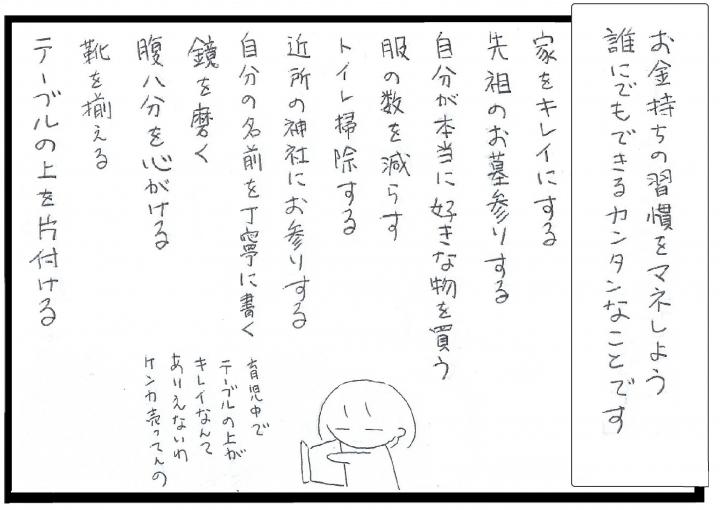 お金持ちの習慣をマネしよう
誰にでもできるカンタンなことです
家をキレイにする
先祖のお墓参りする
自分が本当に好きな物を買う
服の数を減らす
トイレ掃除する
近所の神社にお参りする
自分の名前を丁寧に書く
鏡を磨く
腹八分を心がける
靴を揃える
テーブルの上を片付ける
育児中で
テーブルの上が
キレイなんて
ありえないわ
ケンカ売ってんの